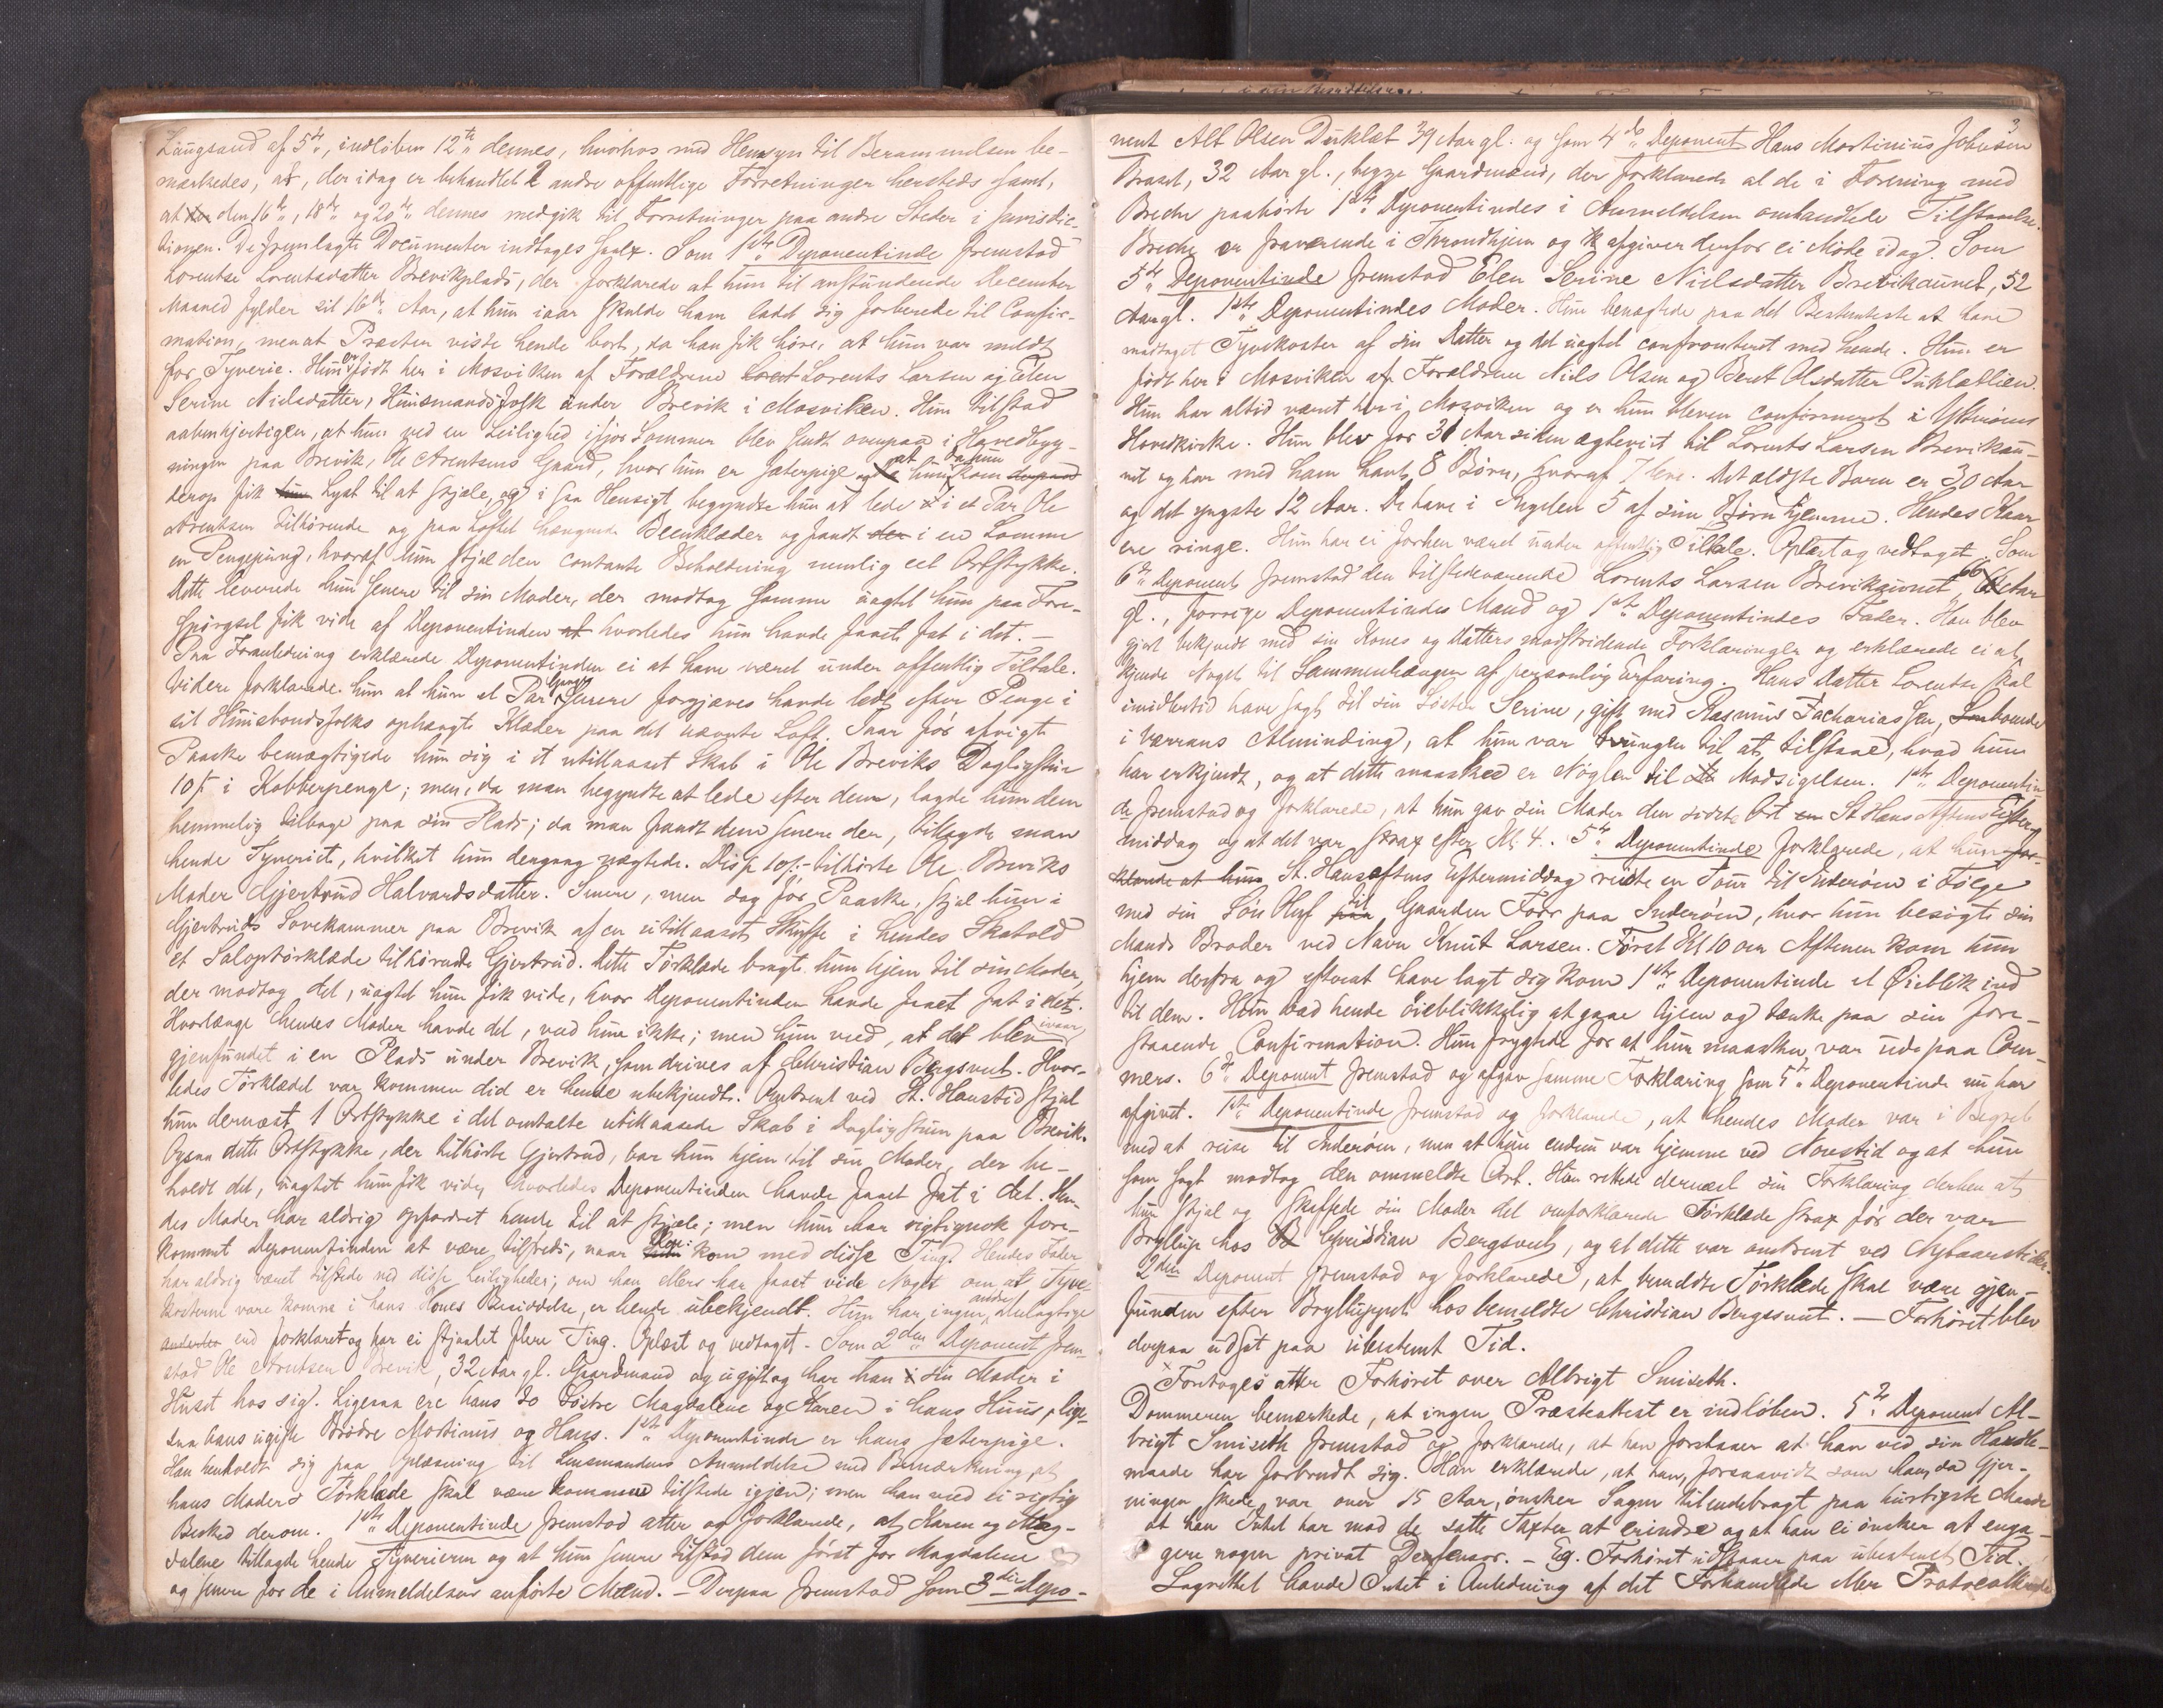 Langsand af 5te, indløben 12te dennes, hvorhos med Hensyn til Berammelsen be-
mærkedes, at, der idag er behandlet 2 andre offentlige Forretninger hersteds samt,
at den 16de, 18de og 20de dennes medgik til Forretninger paa andre Steder i Jurisdic-
tionen. De fremlagte Documenter indtages Som 1ste Deponentinde fremstod
Lorentse Lorentsdatter Brevikplads, der forklarede at hun til anstundende December
Maaned fylder sit 16de Aar, at hun iaar skulde have ladet sig forberede til Confir-
mation, men at Præsten viste hende bort, da han fik høre, at hun var meldt
for Tyverie. Hun er født her i Mosviken af Forældrene Lorents Larsen og Elen
Serine Nielsdatter, Huusmandsfolk under Brevik i Mosviken. Hun tilstod
aabenhjertigen, at hun ved en Leilighed ifjor Sommer blev sendt ovenpaa i Hovedbyg-
ningen paa Brevik, Ole Arentsens Gaard, hvor hun er Gjæterpige, og at hun, da hun kom
derop fik Lyst til at stjæle, og i saa Hensigt begyndte hun at lede i et Par Ole
Arentsen tilhørende og paa Loftet hængende Beenklæder og fandt i en Lomme
en Pengepung, hvoraf hun stjal den contante Beholdning nemlig eet Ortstykke.
Dette leverede hun senere til sin Moder, der modtog samme uagtet hun paa Fore-
spørgsel fik vide af Deponentinden hvorledes hun havde faaet fat i det. —
Paa Foranledning erklærede Deponentinden ei at have været under offentlig Tiltale.
Videre forklarede hun at hun et Par Gange senere forgjæves havde ledt efter Penge i
sit Huusbondsfolks ophængte Klæder paa det nævnte Loft. Saa før afvigte
Paaske bemægtigede hun sig i et utillaaset Skab i Ole Breviks Dagligstue
10 s i Kobberpenge; men, da man begyndte at lede efter dem, lagde hun dem
hemmelig tilbage paa sin Plads; da man fandt dem senere der, tillagde man
hende Tyveriet, hvilket hun dengang nægtede. Disse 10 s tilhørte Ole Breviks
Moder Gjertrud Halvardsdatter. Senere, men dog før Paaske, stjal hun i
Gjertruds Sovekammer paa Brevik af en utillaaset Skuffe i hendes Skatold
et Salopstørklæde tilhørende Gjertrud. Dette Tørklæde bragte hun hjem til sin Moder,
der modtog det, uagtet hun fik vide, hvor Deponentinden havde faaet fat i det.
Hvorlænge hendes Moder havde det, veed hun ikke; men hun veed, at det blev ivaar
gjenfundet i en Plads under Brevik, som drives af Christian Bergsvet. Hvor-
ledes Tørklædet var kommen did er hende ubekjendt. Omtrent ved St. Hanstid stjal
hun dernæst 1 Ortstykke i det omtalte utillaasede Skab i Dagligstuen paa Brevik.
Ogsaa dette Ortstykke, der tilhørte Gjertrud, bar hun hjem til sin Moder, der be-
holdt det, uagtet hun fik vide, hvorledes Deponentinden havde faaet fat i det. Hen-
des Moder har aldrig opfordret hende til at stjæle; men hun har rigtignok fore-
kommet Deponentinden at være tilfreds, naar Dep. kom med disse Ting. Hendes Fader
har aldrig været tilstede ved disse Leiligheder; om han ellers har faaet vide Noget om at Tyve-
kosterne vare komne i hans Kones Besiddelse, er hende ubekjendt. Hun har ingen andre Meddelagtige
end forklaret og har ei stjaalet flere Ting. Oplæst og vedtaget. Som 2den Deponent frem-
stod Ole Arentsen Brevik, 32 Aar gl. Gaardmand og ugift og har han sin Moder i
Huset hos sig. Ligesaa ere hans to Søstre Magdalene og Karen i hans Huus, lige-
saa hans ugifte Brødre Mortinus og Hans. 1ste Deponentinde er hans Gjæterpige.
Han henholdt sig paa Oplæsning til Lensmandens Anmeldelse med Bemærkning, at
hans Moders Tørklæde skal være kommen tilstede igjen; men han veed ei rigtig
Besked derom. 1ste Deponentinde fremstod atter og forklarede, at Karen og Mag-
dalene tillagde hende Tyverierne og at hun senere tilstod dem først for Magdalene
og senere for de i Anmeldelsen anførte Mænd. — Derpaa fremstod som 3die Depo-
3
nent Alb. Olsen Duklæt 39 Aar gl. og som 4de Deponent Hans Mortinius Johnsen
Braset, 32 Aar gl., begge Gaardmænd, der forklarede at de i Forening med
Breche paahørte 1ste Deponentindes i Anmeldelsen omhandlede Tilstaaelse.
Breche er fraværende i Throndhjem og afgiver derfor ei Møde idag. Som
5te Deponentinde fremstod Elen Serine Nielsdatter Brevikaunet, 52
Aar gl. 1ste Deponentindes Moder. Hun benægtede paa det Bestemteste at have
modtaget Tyvekoster af sin Datter og det uagtet confronteret med hende. Hun er
født her i Mosviken af Forældrene Niels Olsen og Beret Olsdatter Duklætlien.
Hun har altid været her i Mosviken og er hun bleven confirmeret i Ytterøens
Hovedkirke. Hun blev for 31 Aar siden ægteviet til Lorents Larsen Brevikau-
net og har med ham havt 8 Børn, hvoraf 7 leve. Det ældste Barn er 30 Aar
og det yngste 12 Aar. De have i Regelen 5 af sine Børn hjemme. Hendes Kaar
ere ringe. Hun har ei forhen været under offentlig Tiltale. Oplæst og vedtaget. Som
6te Deponent fremstod den tilstedeværende Lorents Larsen Brevikaunet, 66 Aar
gl., forrige Deponentindes Mand og 1ste Deponentindes Fader. Han blev
gjort bekjendt med sin Kones og Datters modstridende Forklaringer og erklærede ei at
kjende Noget til Sammenhængen af personlig Erfaring. Hans Datter Lorentse skal
imidlertid have sagt til sin Søster Serine, gift med Rasmus Zachariassen,
i Værrans Alminding, at hun var tvungen til at tilstaae, hvad hun
har erkjendt, og at dette maaskee er Nøglen til Modsigelsen. 1ste Deponentin-
de fremstod og forklarede, at hun gav sin Moder den sidste Ort St Hans Aftens Efter-
middag og at det var strax efter Kl. 4. 5te Deponentinde forklarede, at hun for-
klarede at hun St. Hansaftens Eftermiddag reiste en Tour til Inderøen i Følge
med sin Søn Oluf til Gaarden Foor paa Inderøen, hvor hun besøgte sin
Mands Broder ved Navn Knut Larsen. Først Kl. 10 om Aftenen kom hun
hjem derfra og efterat have lagt sig kom 1ste Deponentinde et Øieblik ind
til dem. Hun bad hende øieblikkelig at gaae hjem og tænke paa sin fore-
staaende Confirmation. Hun frygtede for at hun maaskee var ude paa Com-
mers. 6te Deponent fremstod og afgav samme Forklaring som 5te Deponentinde nu har
afgivet. 1ste Deponentinde fremstod og forklarede, at hendes Moder var i Begreb
med at reise til Inderøen, men at hun endnu var hjemme ved Nonstid og at hun
som sagt modtog den ommeldte Ort. Hun rettede dernæst sin Forklaring derhen at
hun stjal og skaffede sin Moder det omforklarede Tørklæde strax før der var
Bryllup hos Christian Bergsvet, og at dette var omtrent ved Nytaarstider.
2den Deponent fremstod og forklarede, at bemeldte Tørklæde skal være gjen-
funden efter Brylluppet hos bemeldte Christian Bergsvet. — Forhøret blev
derpaa udsat paa ubestemt Tid.
Foretoges atter Forhøret over Albrigt Smiseth.
Dommeren bemærkede, at ingen Præsteattest er indløben. 5te Deponent Al-
brigt Smiseth fremstod og forklarede, at han forstaaer at han ved sin Handle-
maade har forbrudt sig. Han erklærede, at han, forsaavidt som han, da Gjer-
ningen skede var over 15 Aar, ønsker Sagen tilendebragt paa hurtigste Maade
at han Intet har mod de satte Taxter at erindre og at han ei ønsker at enga-
gere nogen privat Defensor. — Forhøret udstaaer paa ubestemt Tid.
Lagrettet havde Intet i Anledning af det Forhandlede eller